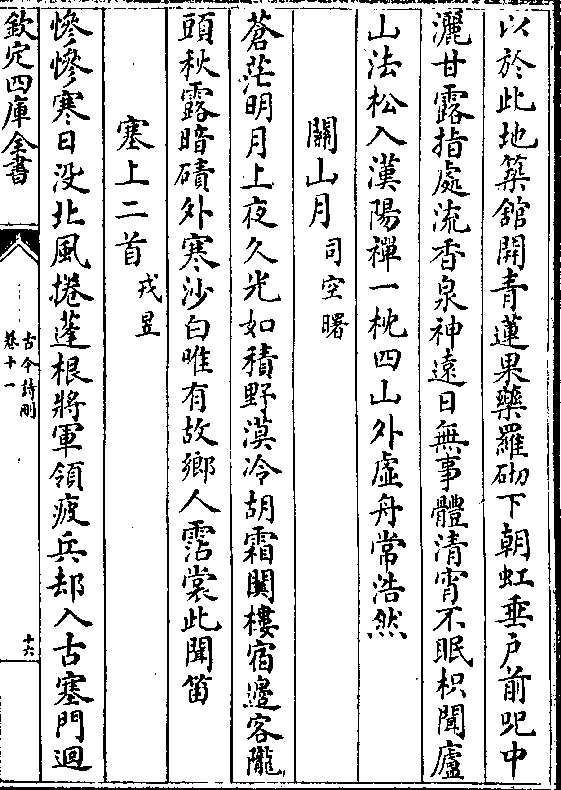 以於此地築館開青蓮果藥羅砌下朝虹垂戶前呪中
灑甘露指處流香泉神遠日無事體清宵不眠枳聞廬
山法松入漢陽禪一枕四山外虛舟常浩然
關山月司空曙
蒼茫明月上夜久光如積野漠冷胡霜關樓宿邊客隴
頭秋露暗磧外寒沙白唯有故鄉人霑裳此聞笛
塞上二首戎昱
慘慘寒日没北風捲蓬根將軍領疲兵却入古塞門迴
欽定四庫全書
古今詩刪
卷十一
十六